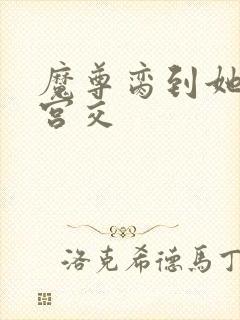 魔尊脔到她
宫交
洛克希德馬丁